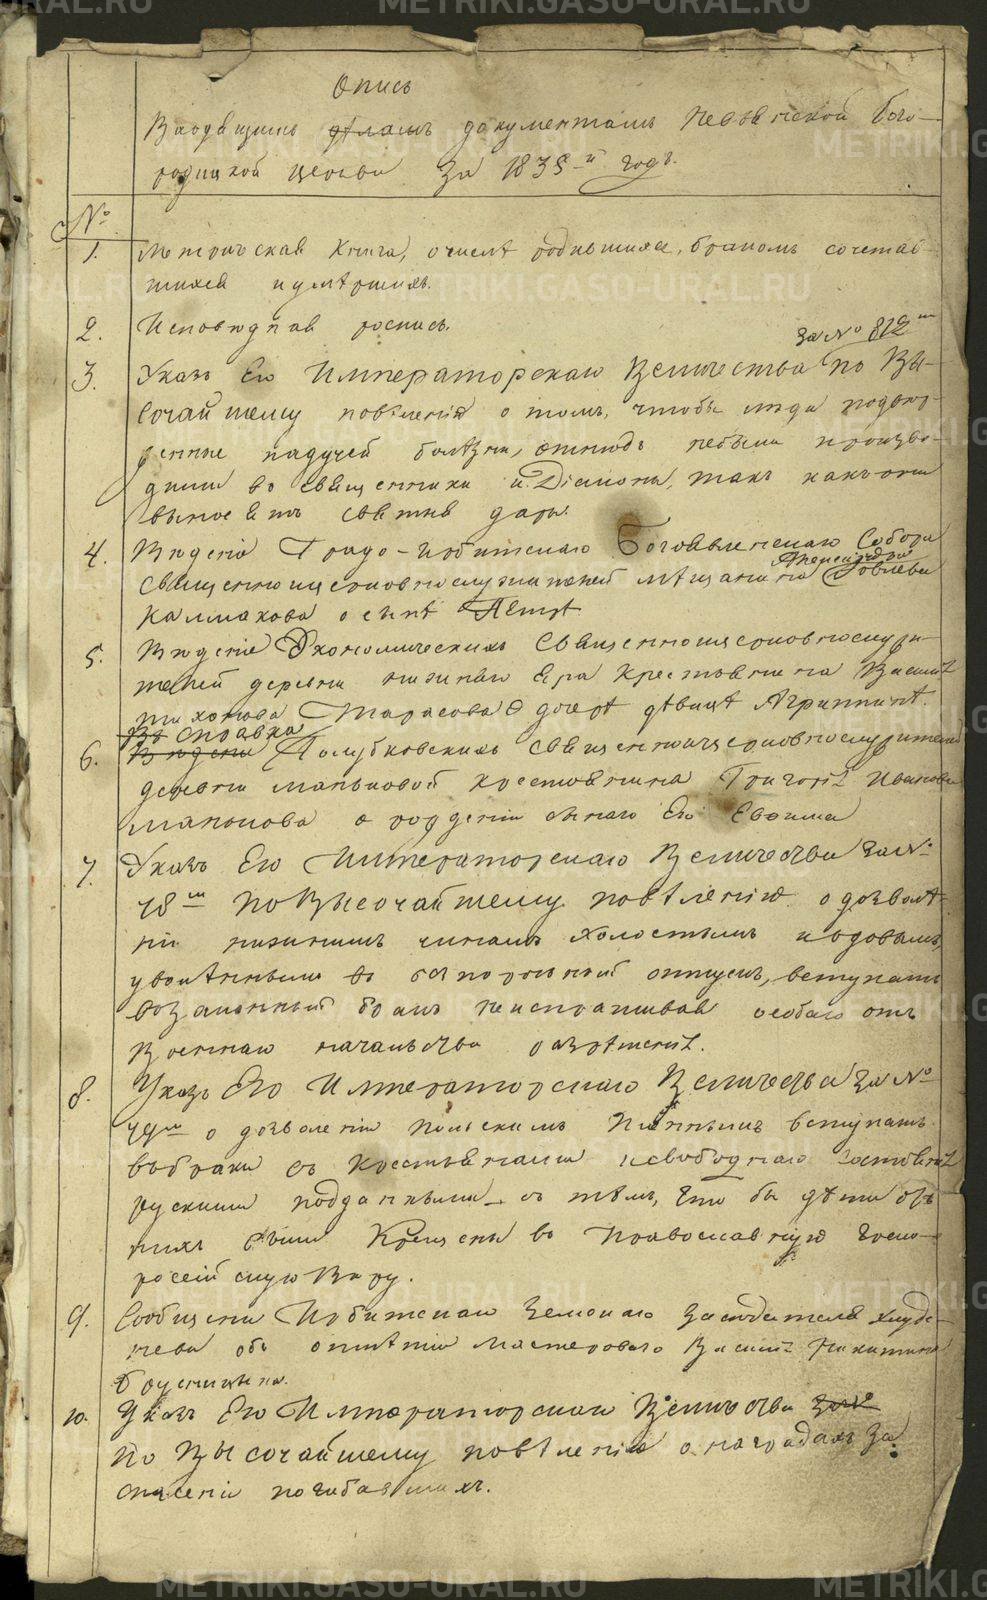 Опись
Входящимъ дѣламъ документамъ Невьянской Бого-
родицкой церкви За 1835й годъ.
№
1. Метрическая книга, о числѣ родившихся, бракомъ сочетав-
шихся и умѣршихъ.
2. Исповѣдная роспись.
за № 812м
3. Указъ Его Императорскаго Величества по Вы-
сочайшему повѣленію о томъ, чтобы люди подвер-
женные падучей болѣзни, отнюдь небыли произво-
димы во священники и Діаконы, такъ какъ они
выносятъ святыя дары.
4. Вѣденіе Градо-Ирбитскаго Богоявленскаго Собора
священноицерковнослужителей мѣщанина
Калмакова о сынѣ Пѣтрѣ
5. Вѣденіе Экономическихъ Священноицерковнослужи-
телей деревни крестьянина Василія
Тихонова Тарасова о дочерѣ дѣвицѣ Агриппинѣ.
Справка
6. Вѣдени Голубковскихъ священноицерковнослужителей
деревни Маньковой крестьянина Григорія Иванова
Манькова о рожденіи сынаго Его Евѳима
7. Указъ Его Императорскаго Величества За №
78м по Высочайшему повѣленію о дозволѣ-
ніи нижнимъ чинамъ холостымъ и вдовымъ,
уволѣннымъ въ отпускъ, вступать
взаконный бракъ неиспрашивая особаго отъ
Военнаго начальства разрѣшенія.
8. Указъ Его Императорскаго Величества За №
79м о дозволеніи Польскимъ Плѣннымъ вступать
въбраки съ Крестьянами и свободнаго состоянія
рускими подданными съ тѣмъ, что бы дѣти отъ
нихъ были Крещены въ Православную Греко-
росейскую Вѣру.
9. Сообщени Ирбитскаго Земскаго Заседателя
объ мастероваго Василія Никитина
Брусницына.
10. Указъ Его Императорскаго Величества За №
По Высочайшему повѣленію о наградахъ За
спасеніи погибавшихъ.
METRIKI.GASO-URAL.RU